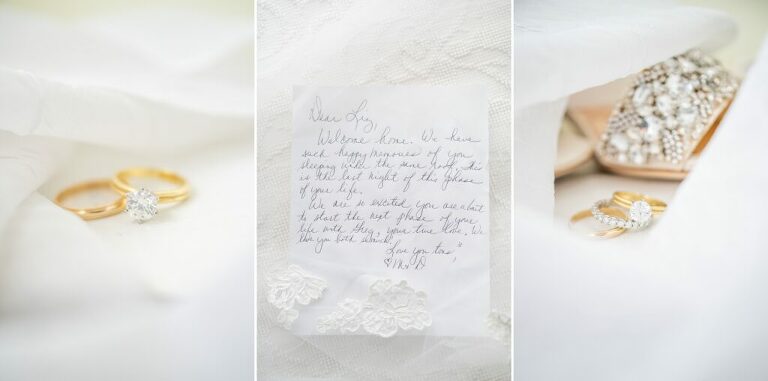 Dear Liz,
Welcome home. We have
such happy memories of you
sleeping under the same roof, this
is the last night of this phase
of your life.
We are so excited you are about
to start the next phase of your
life with Greg, your true love. We
love you both so much,
Love you tons,